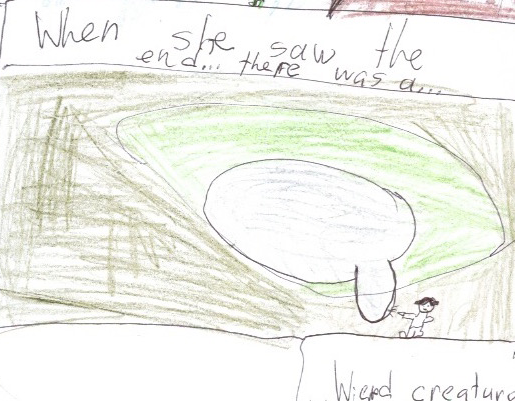 When she saw the
end... there was a...
Wierd creature